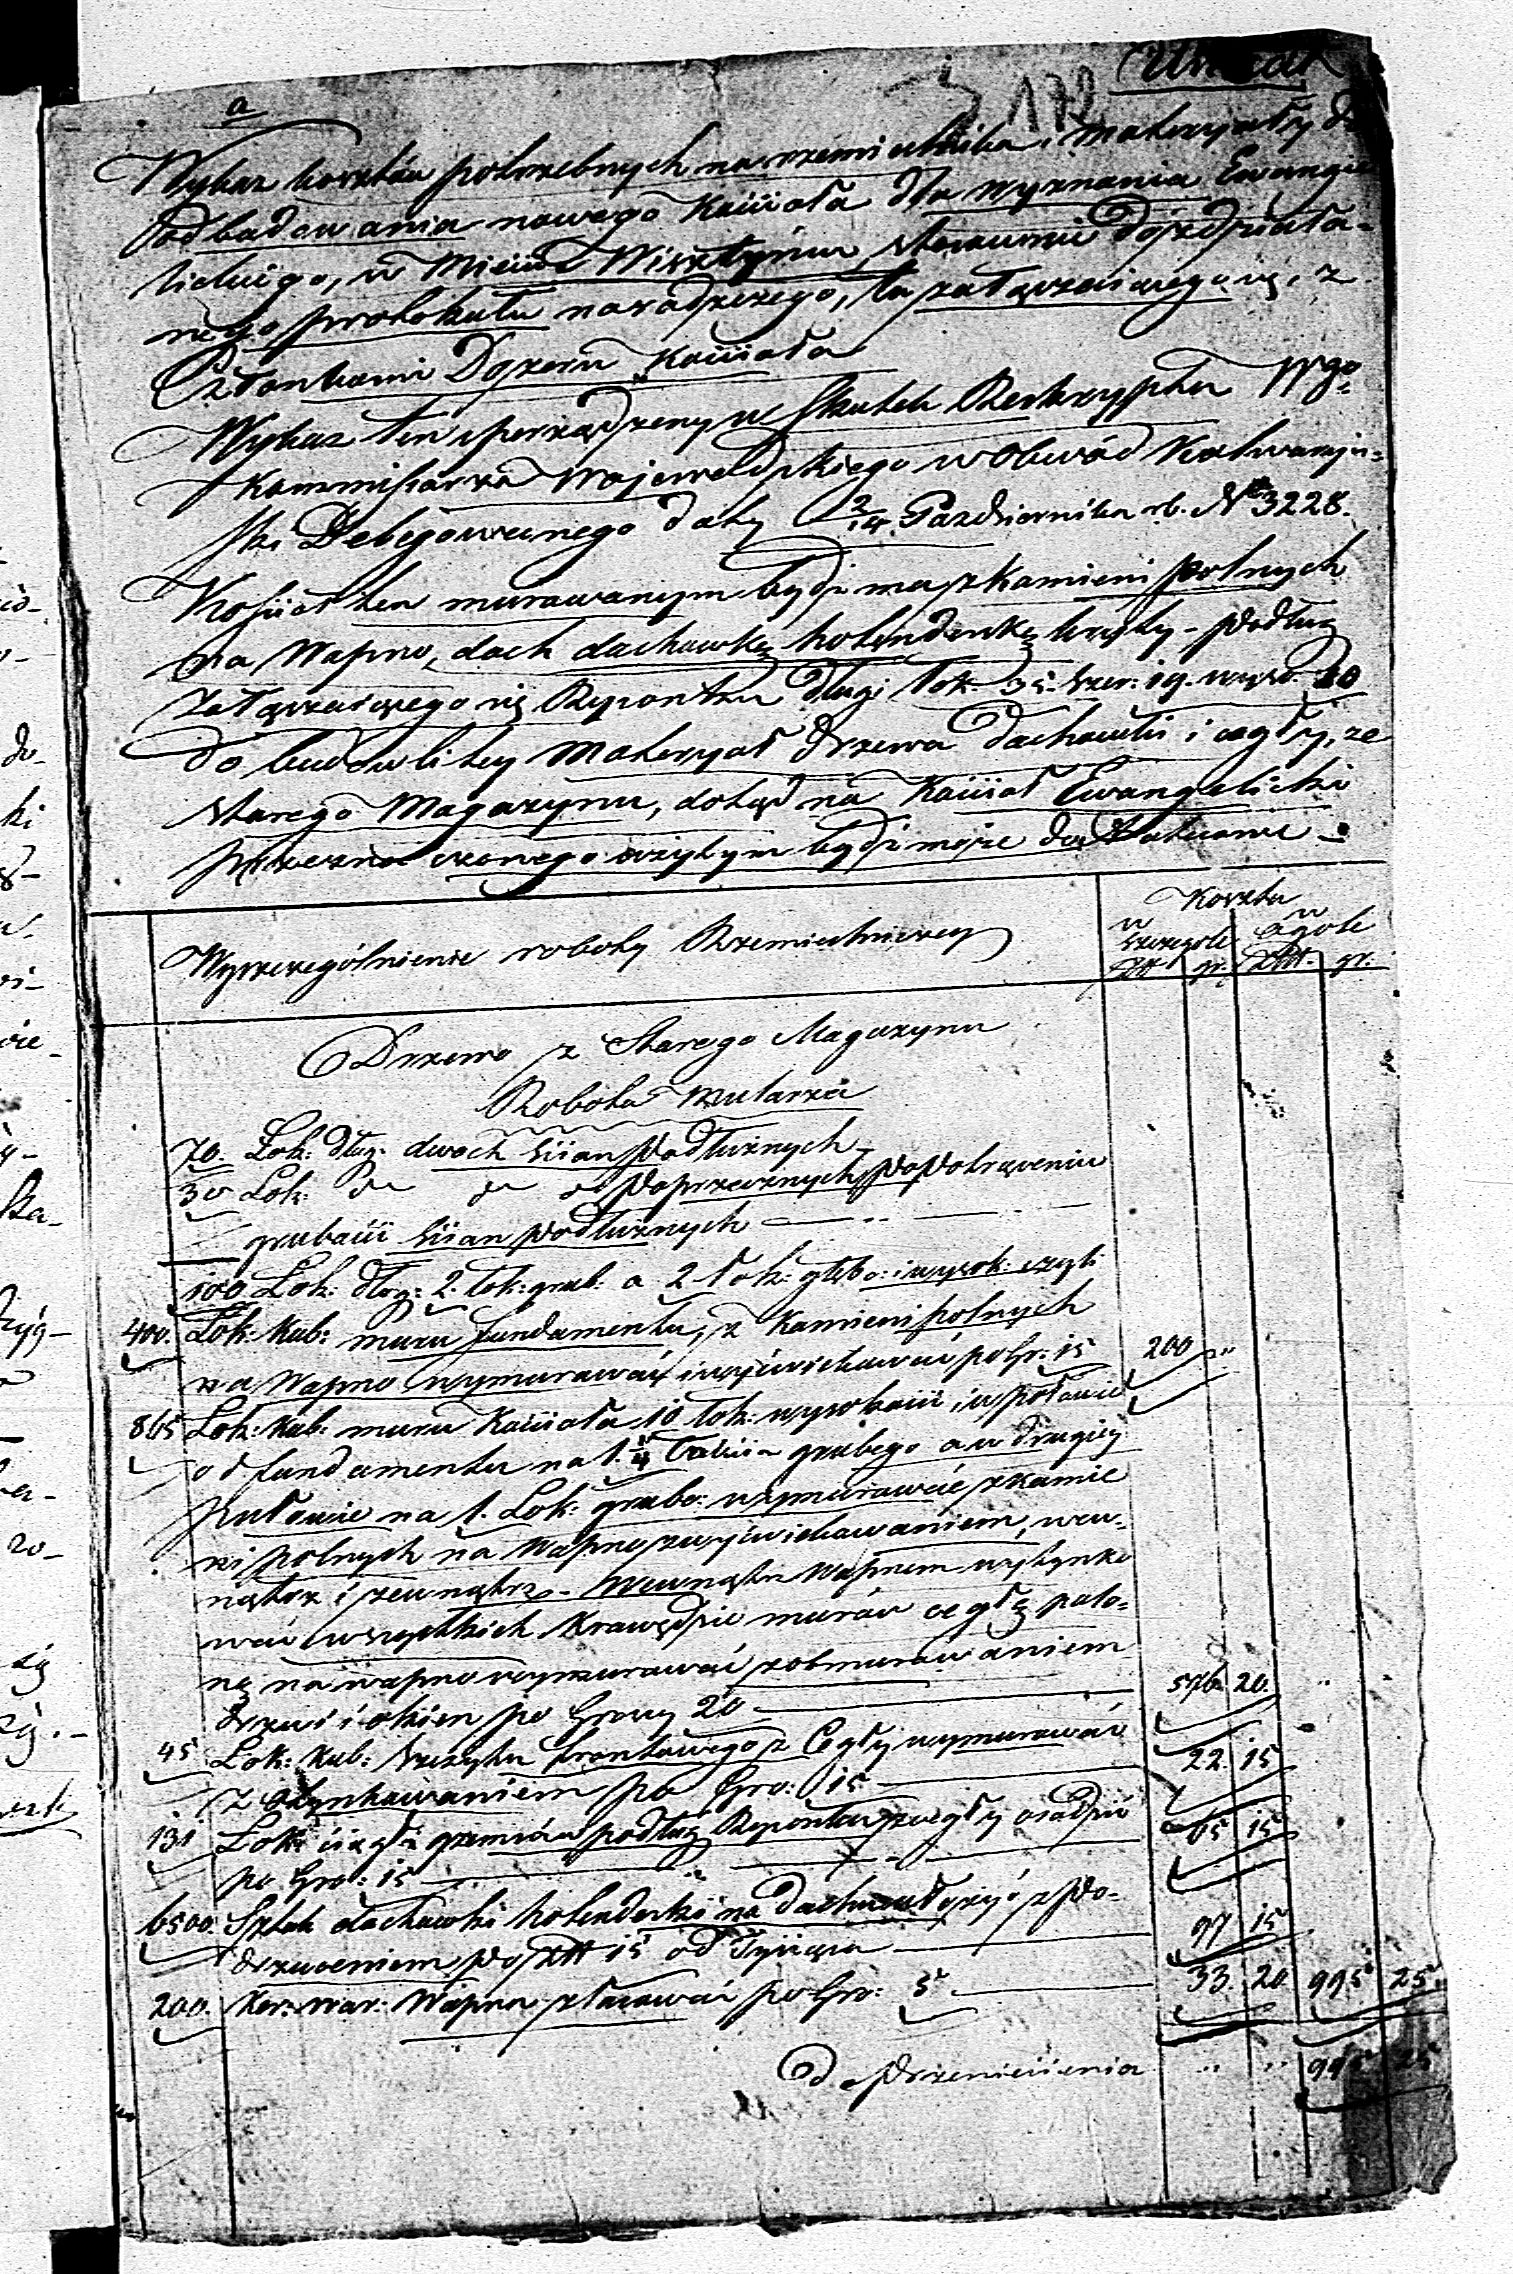 a
172
Wykaz kosztów potrzebnych na rzemieślnika i Materyały do
odbudowania nowego Kościoła dla wyznania Ewangie
lickiego, w Mieście Wisztyńcu, stosownie do
nego protokułu naradzczego, tu załączaiącego się, z
Członkami Dozoru Kościoła
Wykaz ten sporządzony w skutek Reskryptu Wgo
Kommissarza Wojewódzkiego w Obwód Kalwaryi=
ski Delegowanego daty 2/14 Października rb. No 3228.
Kosciół ten murowanym bydź ma z Kamieni polnych
na Wapno, dach dachówką holenderką kryty - podług
załączaiącego się Rysonku długi łok. 35. szer: 19. wyso. 10
do budowli tey Materyał drzewa dachówki i cegły, ze
starego Magazynu, dotąd na Kościoł Ewangelicki
przeznaczonego użytym bydź może
Wyszczególnienie roboty Rzemieślniczey
Koszta
w szczegole
w ogole
Złt gr. Złt. gr.
Drzewo z Starego Magazynu
Robota Mularza
70. Łok: dług: dwoch ścian podłużnych
30 Łok: do do do poprzecznych po potrąceniu
grubości ścian podłużnych
100 Łok: dług: 2. łok: grub. a 2 łok: głębo: i wysok: czyli
400. Łok: Kub: muru fundamentu, z Kamieni polnych
na Wapno wymurować i wyćwiekować po Gr: 15 200 "
865 Łok: Kub: muru Kościoła 10 łok: wysokości, w połowie
od fundamentu na 1 1/4 łokcia grubego a w drugiéj
połowie na 1. Łok: grubo: wymurować z kamie
ni polnych na Wapno z wyćwiekowaniem, wew=
nątrz i zewnątrz - wewnątrz Wapnem wytynko
wać wszystkich Krawędzie murów cegłą palo=
ną na wapno wymurować z obmurowaniem
drzwi i okien po Groszy 20 576 20. "
45 Łok: Kub: szczytu frontowego z Cegły wymurować
z otynkowaniem po Gro: 15 22 15
131 Łok: ciągł: gzemsów podług Rysonku z cegły osadzić
po Gro: 15 65 15
6500. Sztuk dachówki holenderki na dachu ułożyć z po=
drzuceniem po Złt 15 od Tysiąca 97 15
200. Kor: war: Wapna zlasować po Gro: 5 33. 20 995 25.
Do przeniesienia " " 995 25